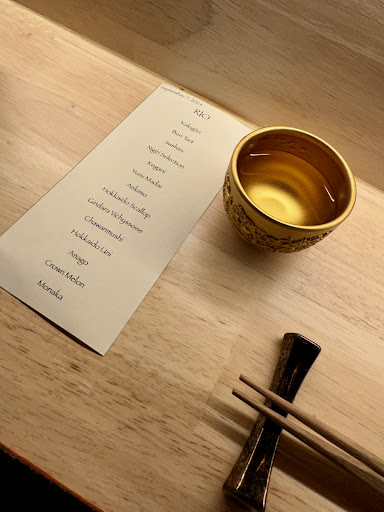 September 7, 2024
RIO
Kakigori
Buri Tart
Sashimi
Nigiri Selection
Kegani
Yuzu Madai
Ankimo
Hokkaido Scallop
Gindara Vichyssoise
Chawanmushi
Hokkaido Uni
Anago
Crown Melon
Monaka